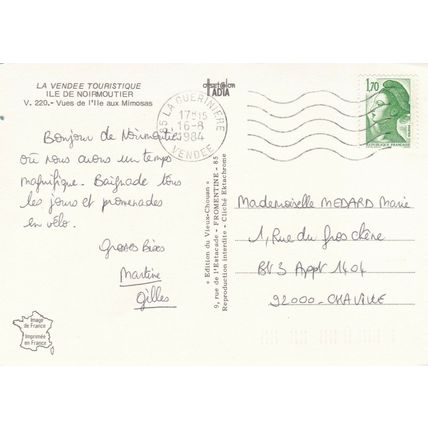 LA VENDEE TOURISTIQUE
ILE DE NOIRMOUTIER
V. 220.- Vues de l'Ile aux Mimosas
Bonjour de Noirmoutier
où nous avons un temps
magnifique. Baignade tous
les jours et promenades
en vélo.
Grosses Bises
Martine
Gilles
Image
de France
Imprimée
en France
« Edition du Vieux-Chouan »
9, rue de l'Estacade - FROMENTINE - 85
Reproduction interdite - Cliché Ektachrome
85 LA GUERINIERE
17H15
16-8
1984
VENDEE
1,70
REPUBLIQUE FRANCAISE
Mademoiselle MEDARD Marie
1, Rue du gros chêne
Bt 3 Appt 1404
92000 - CHAVILLE